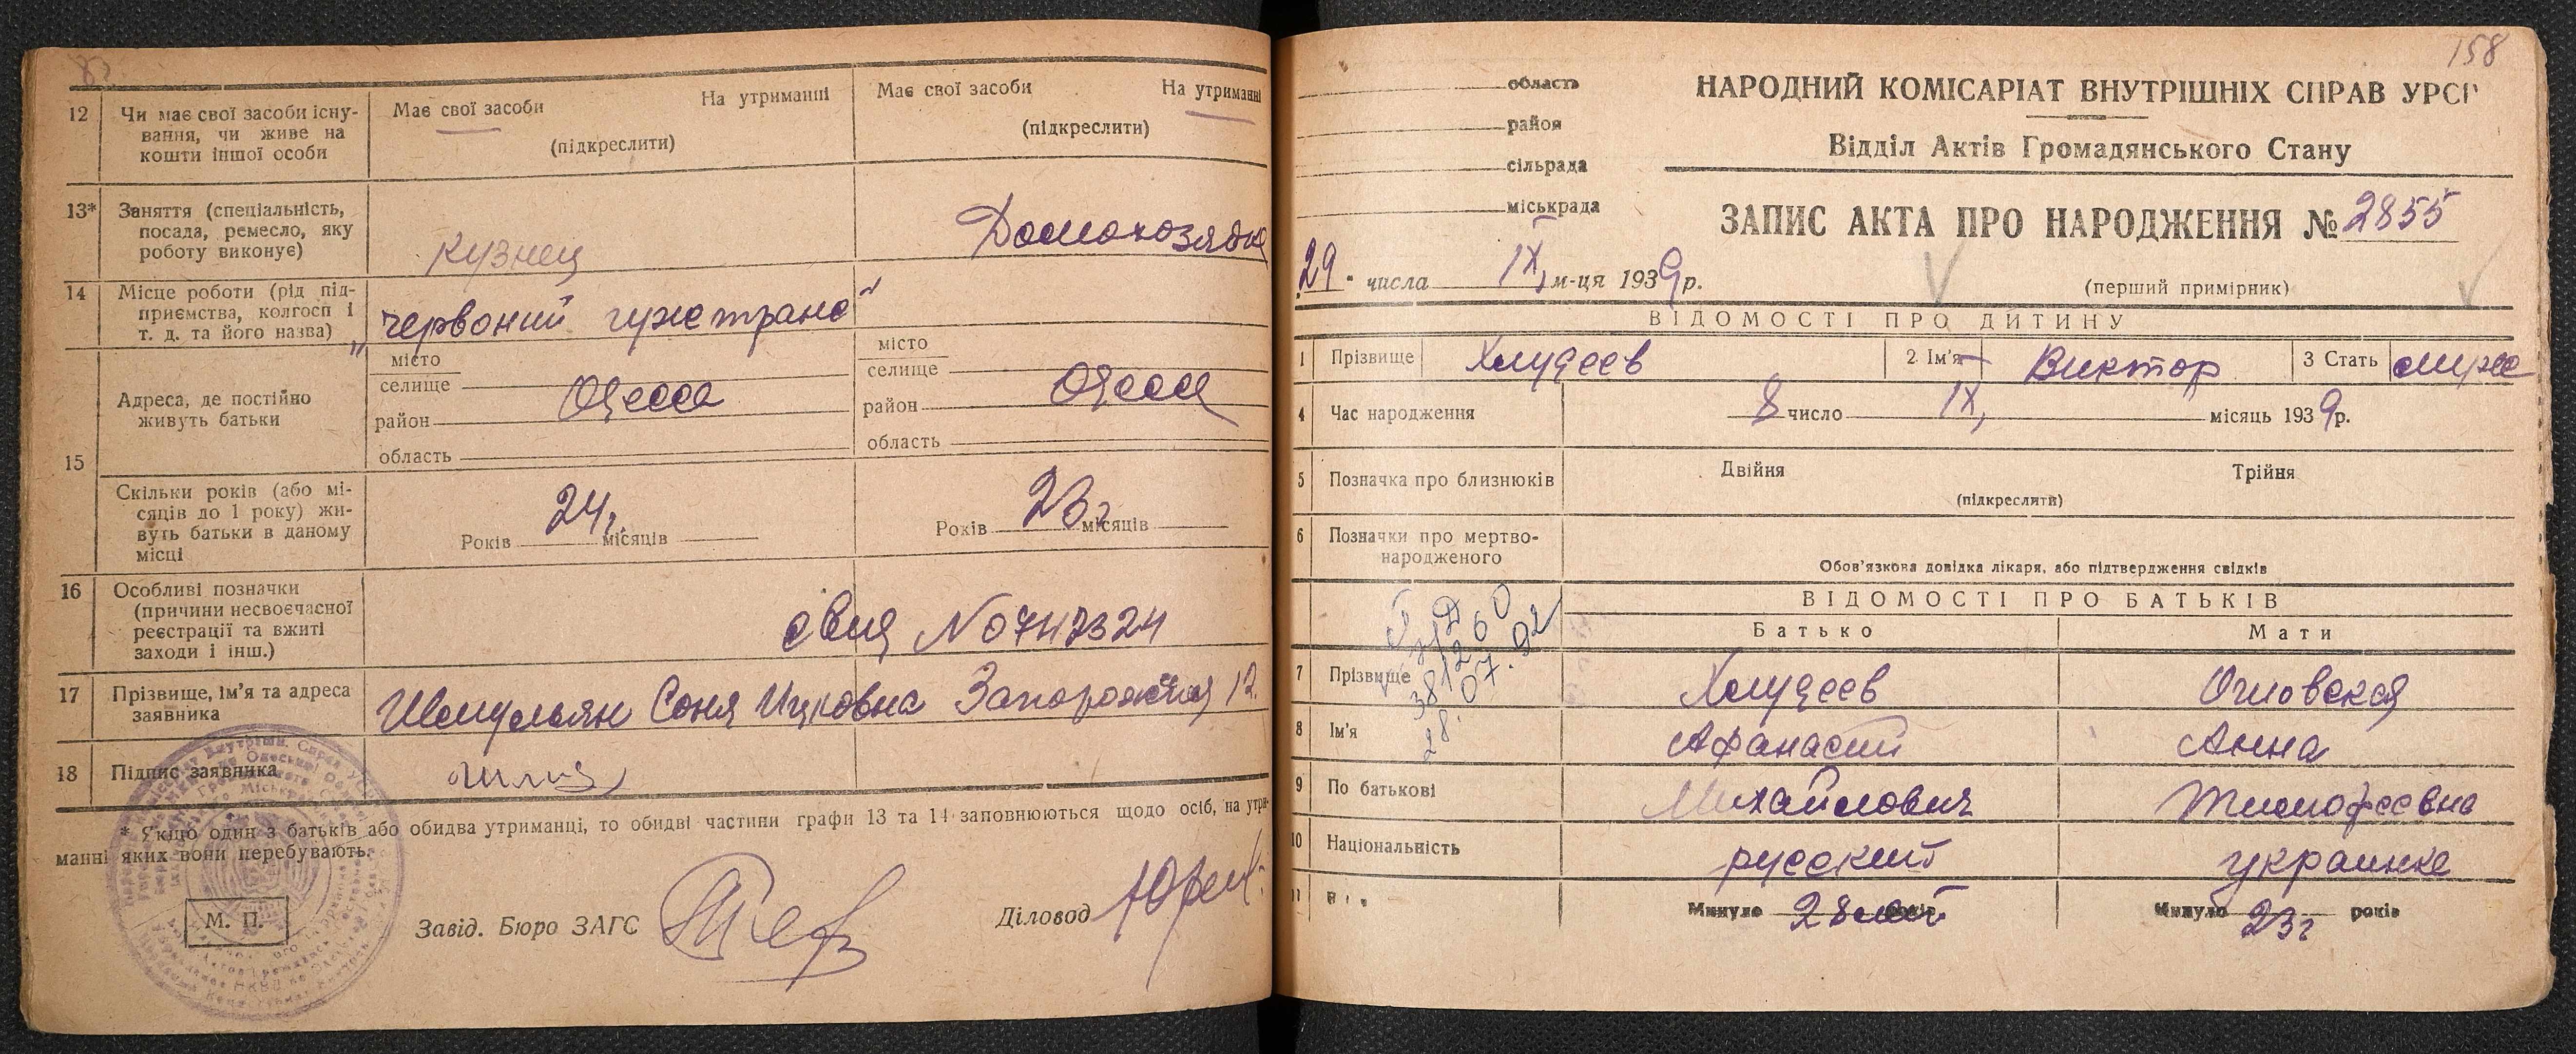 12 Чи має свої засоби існування, чи живе на кошти іншої особи
Має свої засоби На утриманні
(підкреслити)
Має свої засоби На утриманні
(підкреслити)
13* Заняття (спеціальність, посада, ремесло, яку роботу виконує)
кузнец
Домохозяйка
14 Місце роботи (рід підприємства, колгосп і т. д. та його назва)
„Червоний гужтранс"
15 Адреса, де постійно живуть батьки
місто
селище
район
область
Одесса
місто
селище
район
область
Одесса
Скільки років (або місяців до 1 року) живуть батьки в даному місці
Років 24 г. місяців
Років 23 г місяців
16 Особливі позначки (причини несвоєчасної реєстрації та вжиті заходи і інш.)
17 Прізвище, ім'я та адреса заявника
Соня Ицковна Запорожская 12.
18 Підпис заявника
* Якщо один з батьків або обидва утриманці, то обидві частини графи 13 та 14 заповнюються щодо осіб, на утри-
манні яких вони перебувають.
М. П.
Завід. Бюро ЗАГС
Діловод
158
область
район
сільрада
міськрада
НАРОДНИЙ КОМІСАРІАТ ВНУТРІШНІХ СПРАВ УРСР
Відділ Актів Громадянського Стану
ЗАПИС АКТА ПРО НАРОДЖЕННЯ № 2855
29 числа IX м-ця 1939 р.
(перший примірник)
ВІДОМОСТІ ПРО ДИТИНУ
1 Прізвище 2 Ім'я Виктор 3 Стать муж
4 Час народження 8 число IX, місяць 1939 р.
5 Позначка про близнюків Двійня Трійня
(підкреслити)
6 Позначки про мертвонародженого
Обов'язкова довідка лікаря, або підтвердження свідків
ВІДОМОСТІ ПРО БАТЬКІВ
Батько Мати
28.07.92
7 Прізвище
8 Ім'я Афанасий Анна
9 По батькові Михайлович Тимофеевна
10 Національність русский украинка
11 Минуло 28 лет років Минуло 23 г років